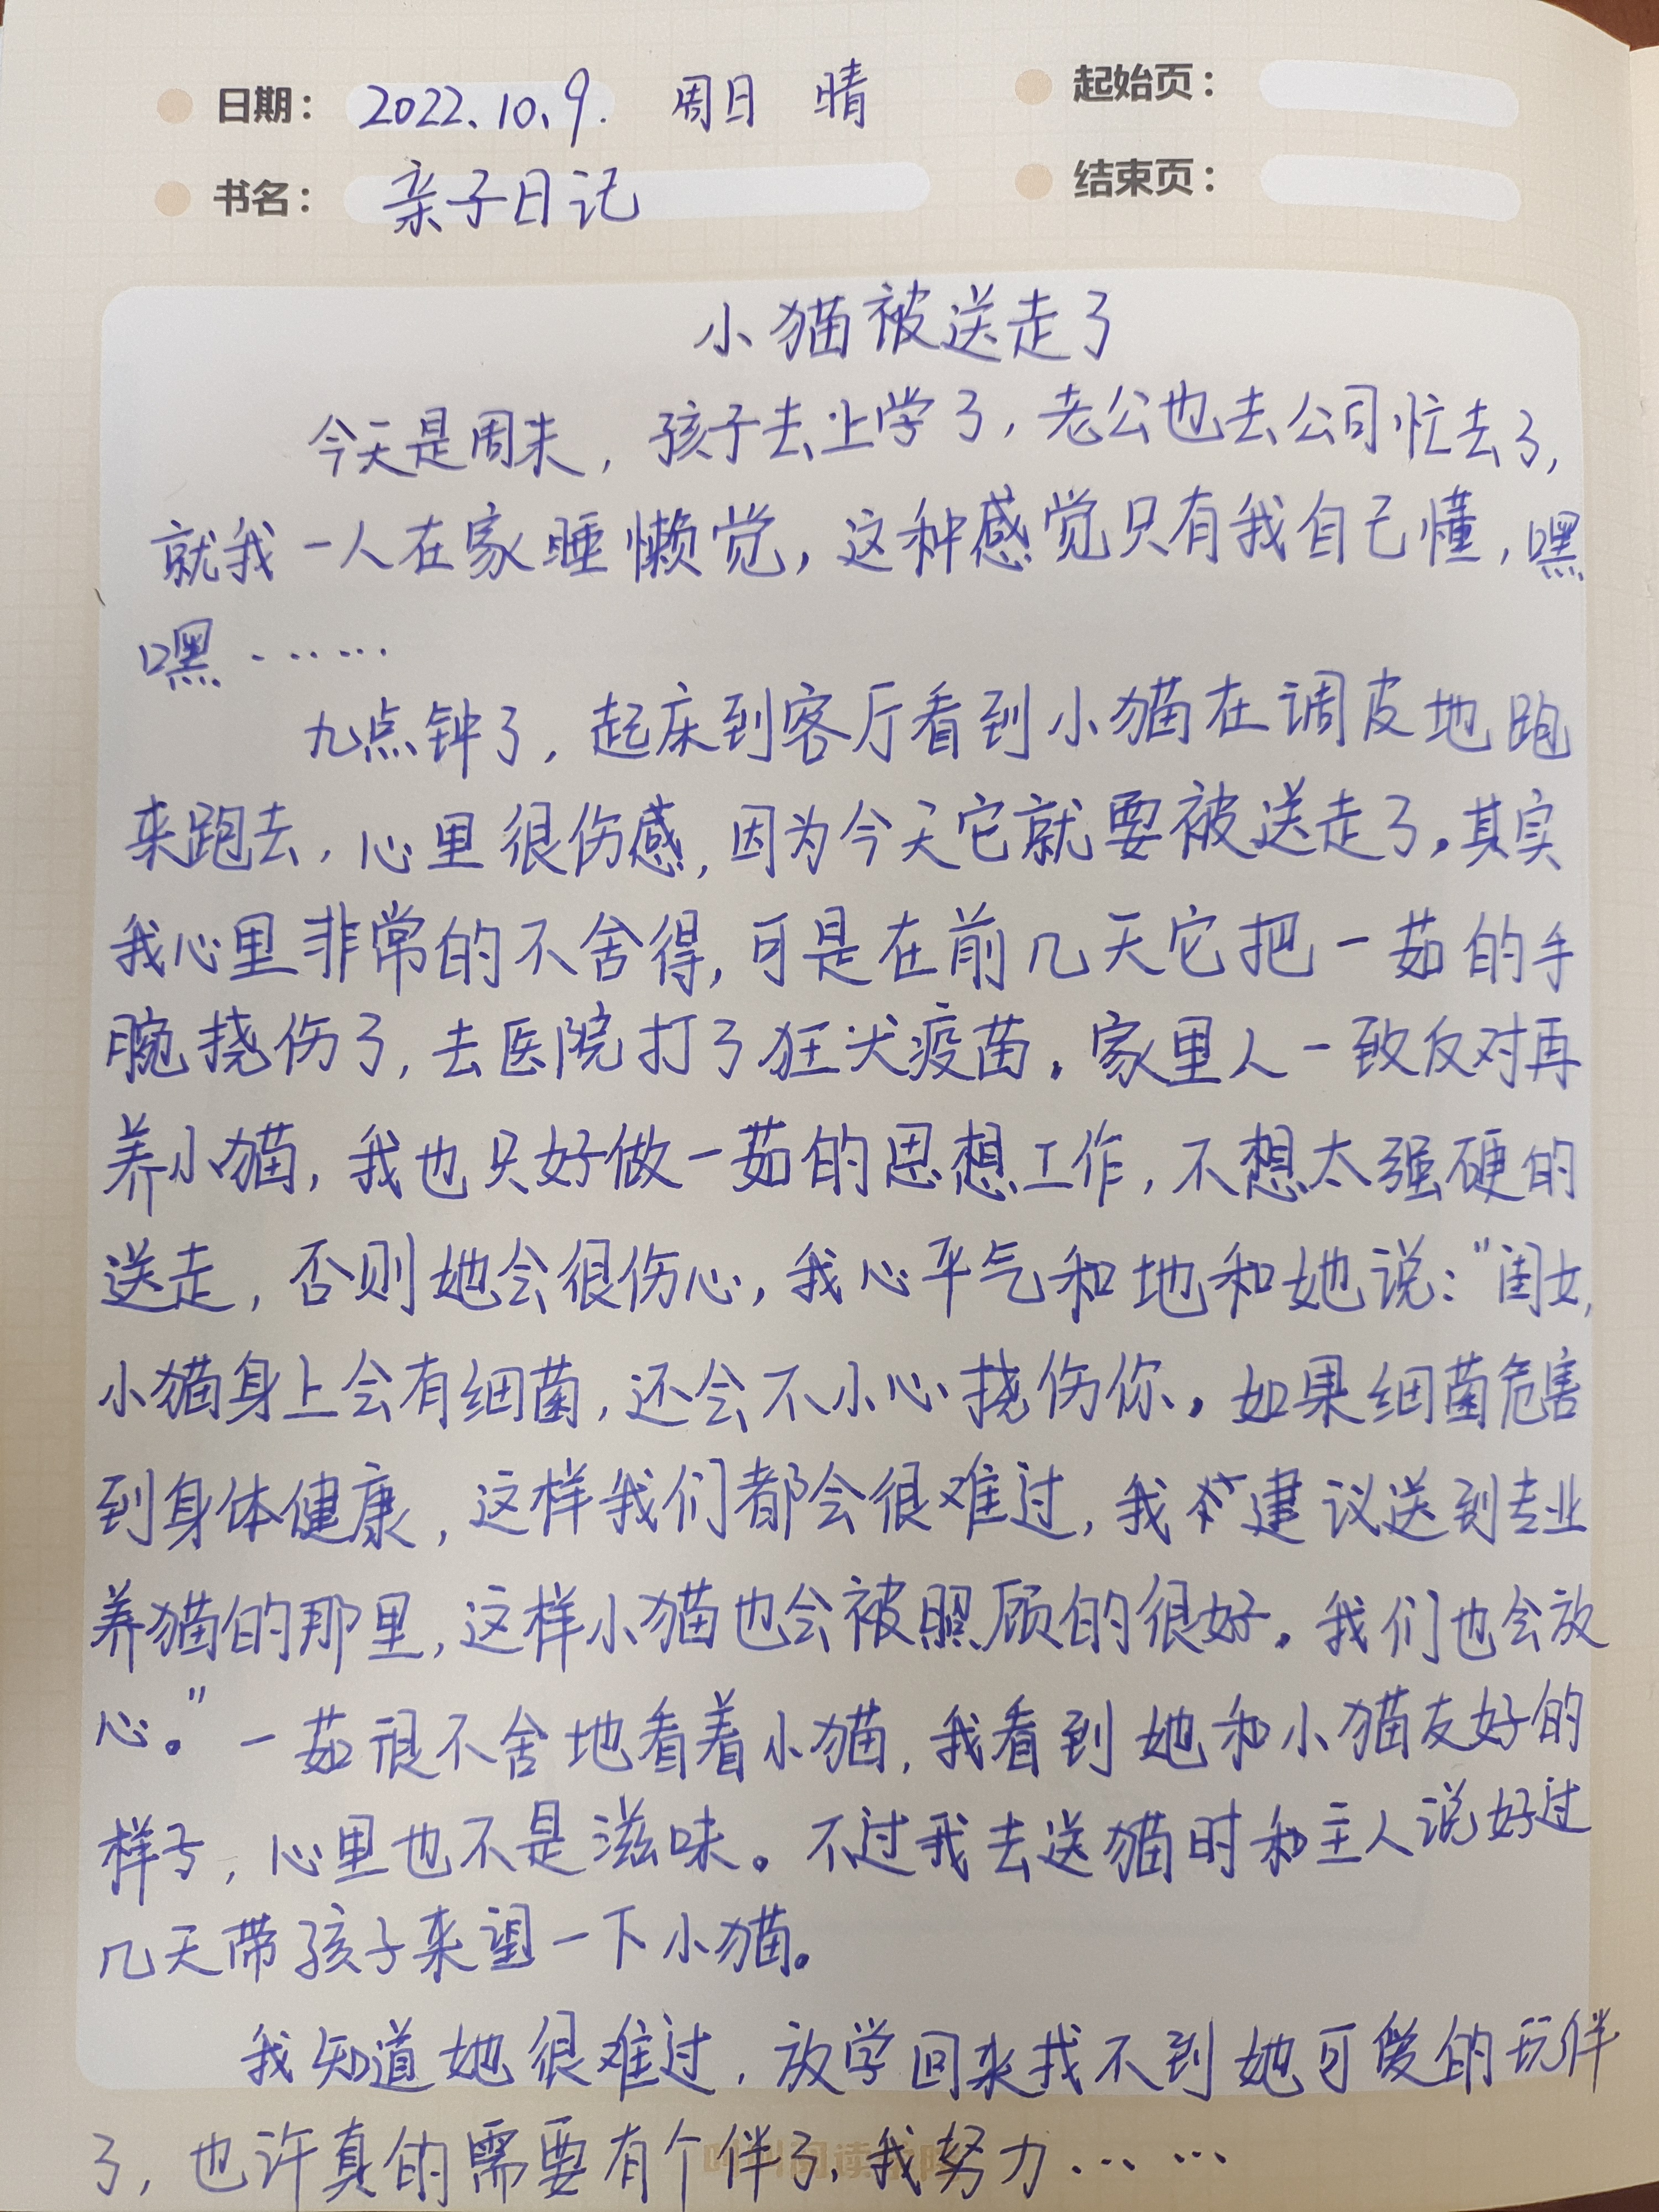 日期： 2022.10.9. 周日 晴 起始页：
书名： 亲子日记 结束页：
小猫被送走了
今天是周末，孩子去上学了，老公也去公司忙去了，
就我一人在家睡懒觉，这种感觉只有我自己懂，嘿
嘿……
九点钟了，起床到客厅看到小猫在调皮地跑
来跑去，心里很伤感，因为今天它就要被送走了。其实
我心里非常的不舍得，可是在前几天它把一茹的手
腕挠伤了，去医院打了狂犬疫苗。家里人一致反对再
养小猫，我也只好做一茹的思想工作，不想太强硬的
送走，否则她会很伤心，我心平气和地和她说："闺女，
小猫身上会有细菌，还会不小心挠伤你。如果细菌危害
到身体健康，这样我们都会很难过，我建议送到专业
养猫的那里，这样小猫也会被照顾的很好。我们也会放
心。"一茹很不舍地看着小猫，我看到她和小猫友好的
样子，心里也不是滋味。不过我去送猫时和主人说好过
几天带孩子来望一下小猫。
我知道她很难过，放学回来找不到她可爱的玩伴
了，也许真的需要有个伴了，我努力……